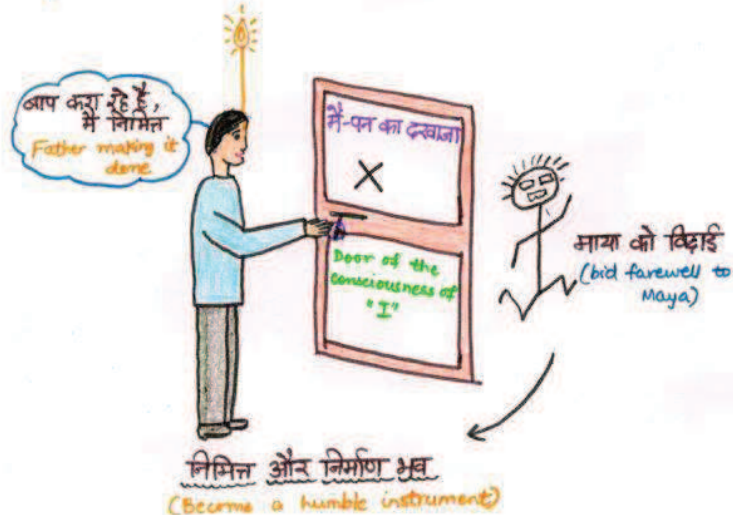 बाप करा रहे है,
मै निमित्त
Father making it
done
मै-पन का दरवाजा
Door of the
consciousness of
"I"
माया को विदाई
(bid farewell to
Maya)
निमित्त और निर्माण भव
(Become a humble instrument)